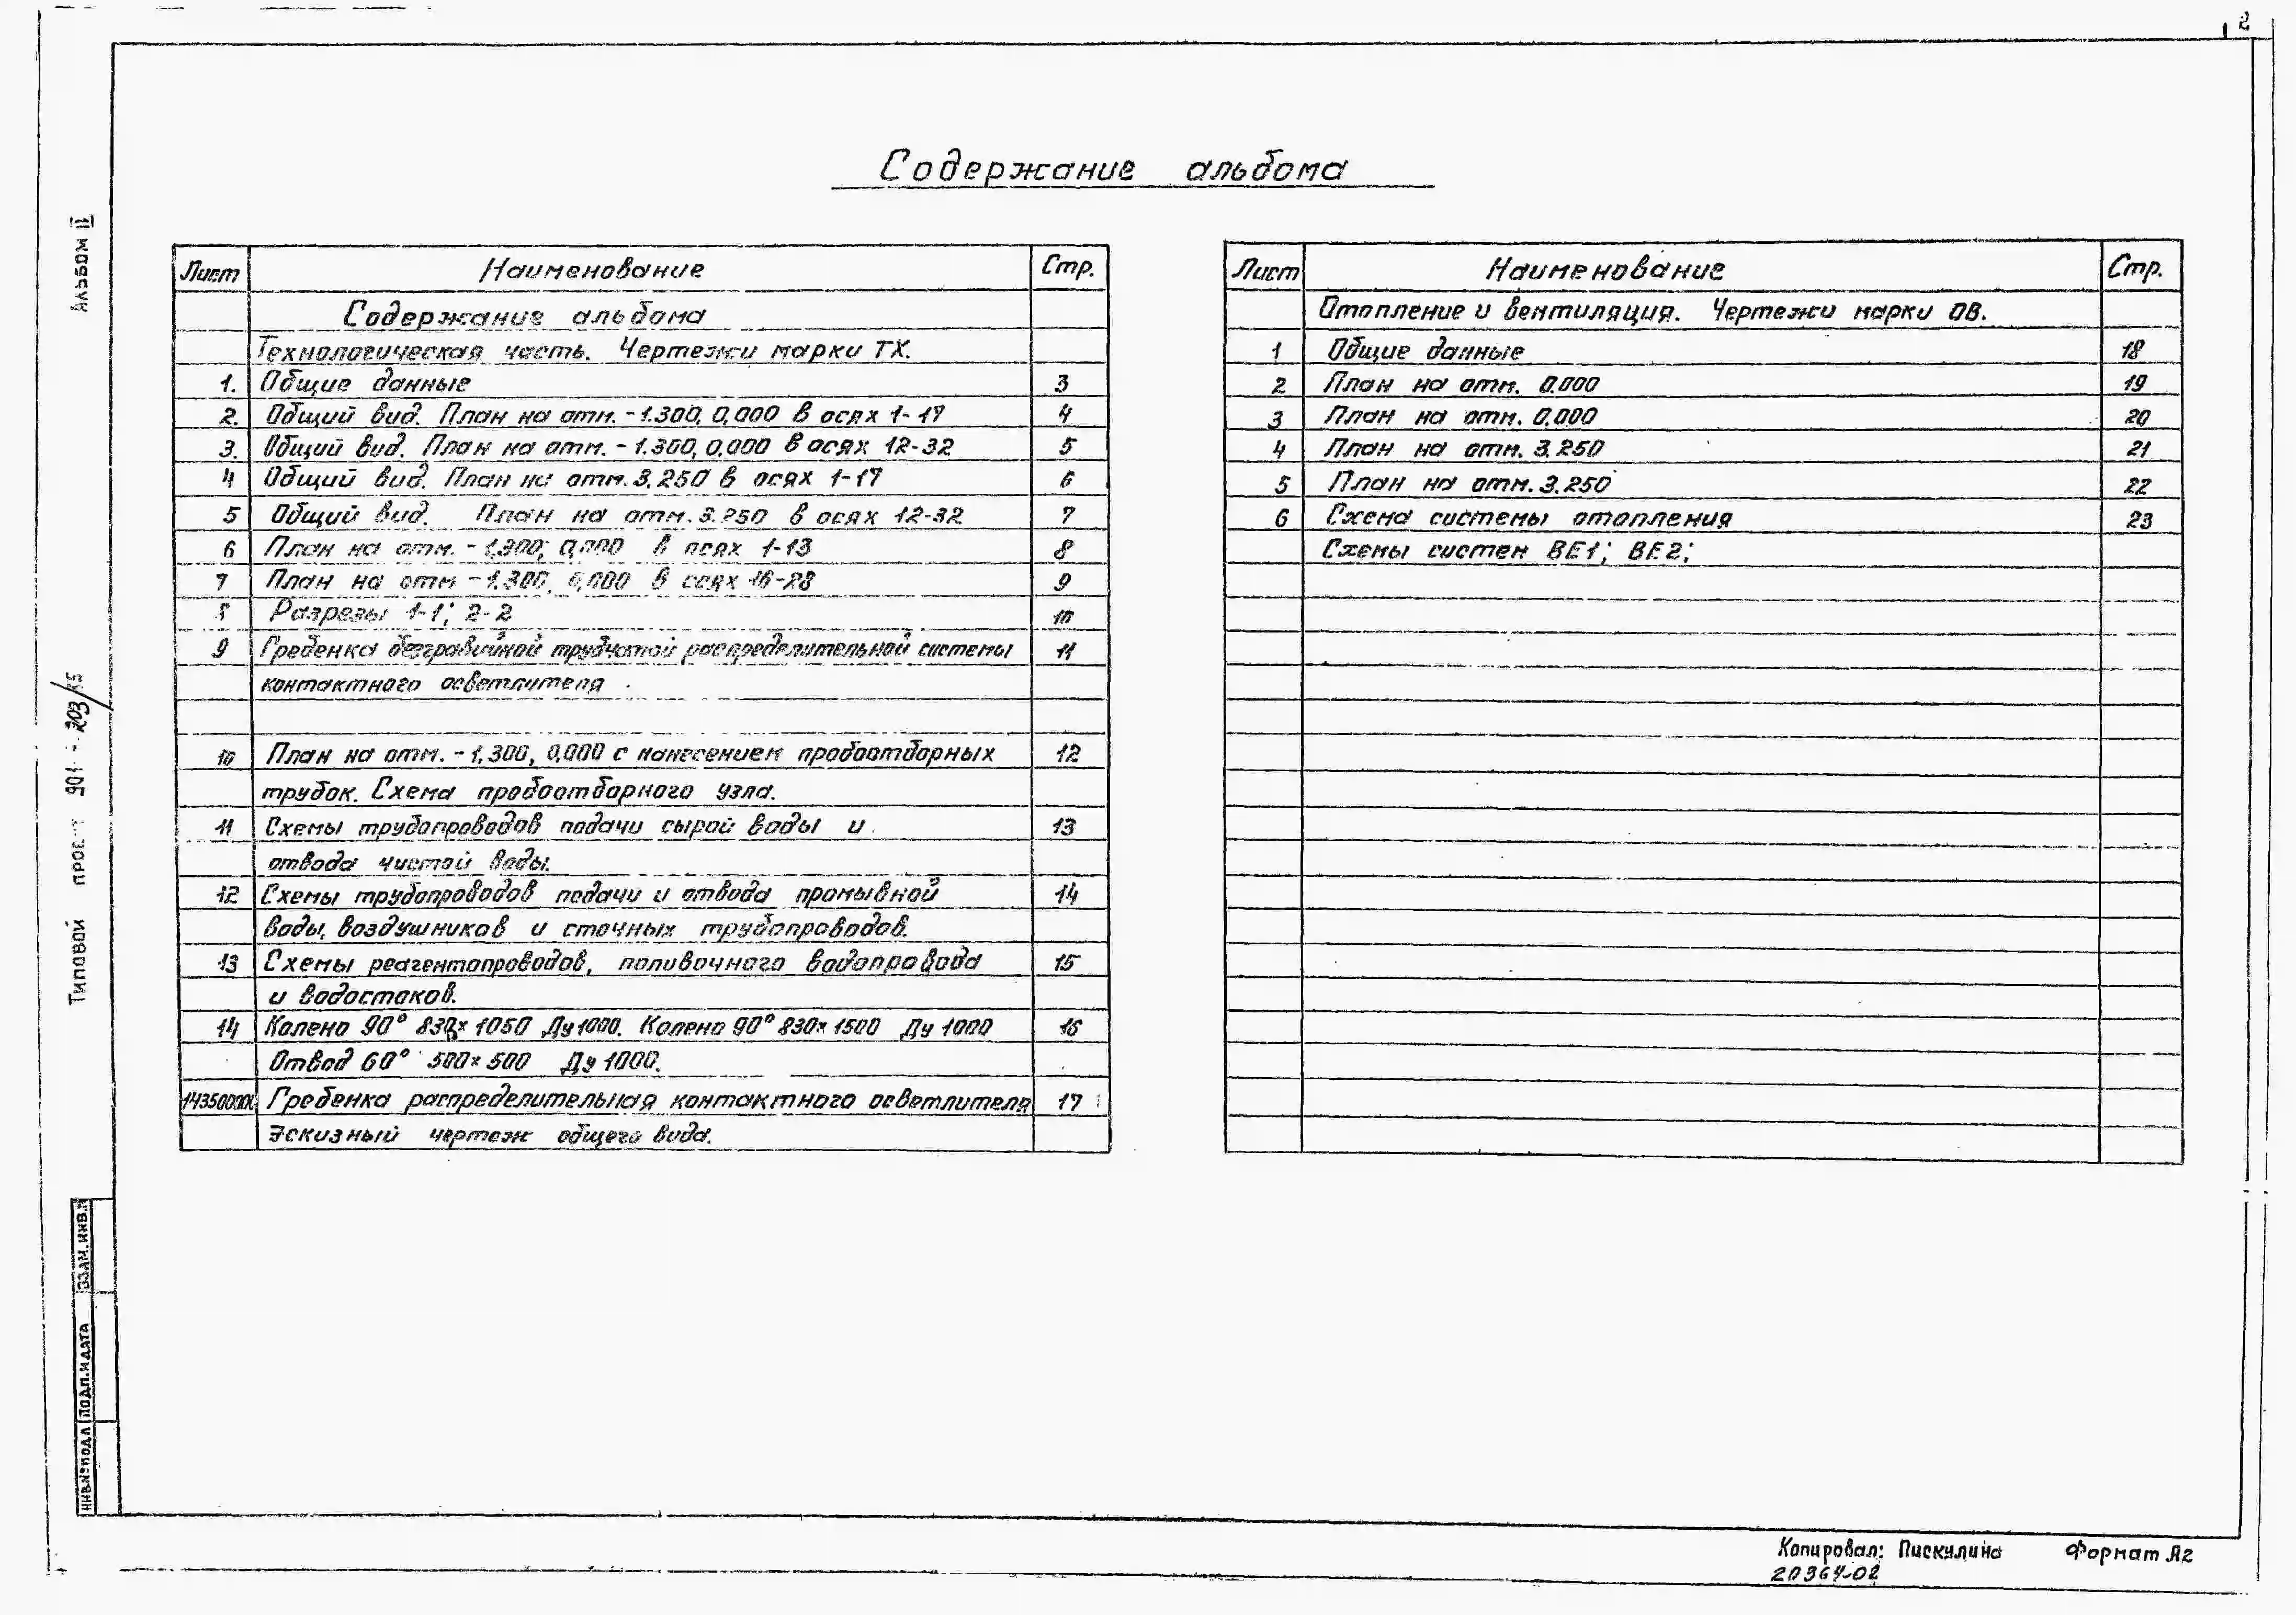 2
Содержание альбома
Лист Наименование Стр.
Содержание альбома
Технологическая часть. Чертежи марки ТХ.
1. Общие данные 3
2. Общий вид. План на отм. -1.300, 0,000 в осях 1-17 4
3. Общий вид. План на отм. -1.300, 0.000 в осях 12-32 5
4 Общий вид. План на отм. 3.250 в осях 1-17 6
5 Общий вид. План на отм. 3.250 в осях 12-32 7
6 План на отм. -1,300; 0,000 в осях 1-13 8
7 План на отм -1.300, 0,000 в осях 16-28 9
8 Разрезы 1-1; 2-2 10
9 Гребенка безгравийной трубчатой распределительной системы 11
контактного осветлителя
10 План на отм. -1,300, 0,000 с нанесением пробоотборных 12
трубок. Схема пробоотборного узла.
11 Схемы трубопроводов подачи сырой воды и 13
отвода чистой воды.
12 Схемы трубопроводов подачи и отвода промывной 14
воды, воздушников и сточных трубопроводов.
13 Схемы реагентопроводов, поливочного водопровода 15
и водостоков.
14 Колено 90° 830х1050 Ду1000. Колено 90° 830х1500 Ду 1000 16
Отвод 60° 500х500 Ду 1000.
Гребенка распределительная контактного осветлителя 17
Эскизный чертеж общего вида.
Лист Наименование Стр.
Отопление и вентиляция. Чертежи марки ОВ.
1 Общие данные 18
2 План на отм. 0.000 19
3 План на отм. 0.000 20
4 План на отм. 3.250 21
5 План на отм. 3.250 22
6 Схема системы отопления 23
Схемы систем ВЕ1; ВЕ2;
Альбом II
Типовой 203/85
Взам.инв.
Подп.и дата
Инв.№подл
Копировал: Пискулина Формат А2
20364-02